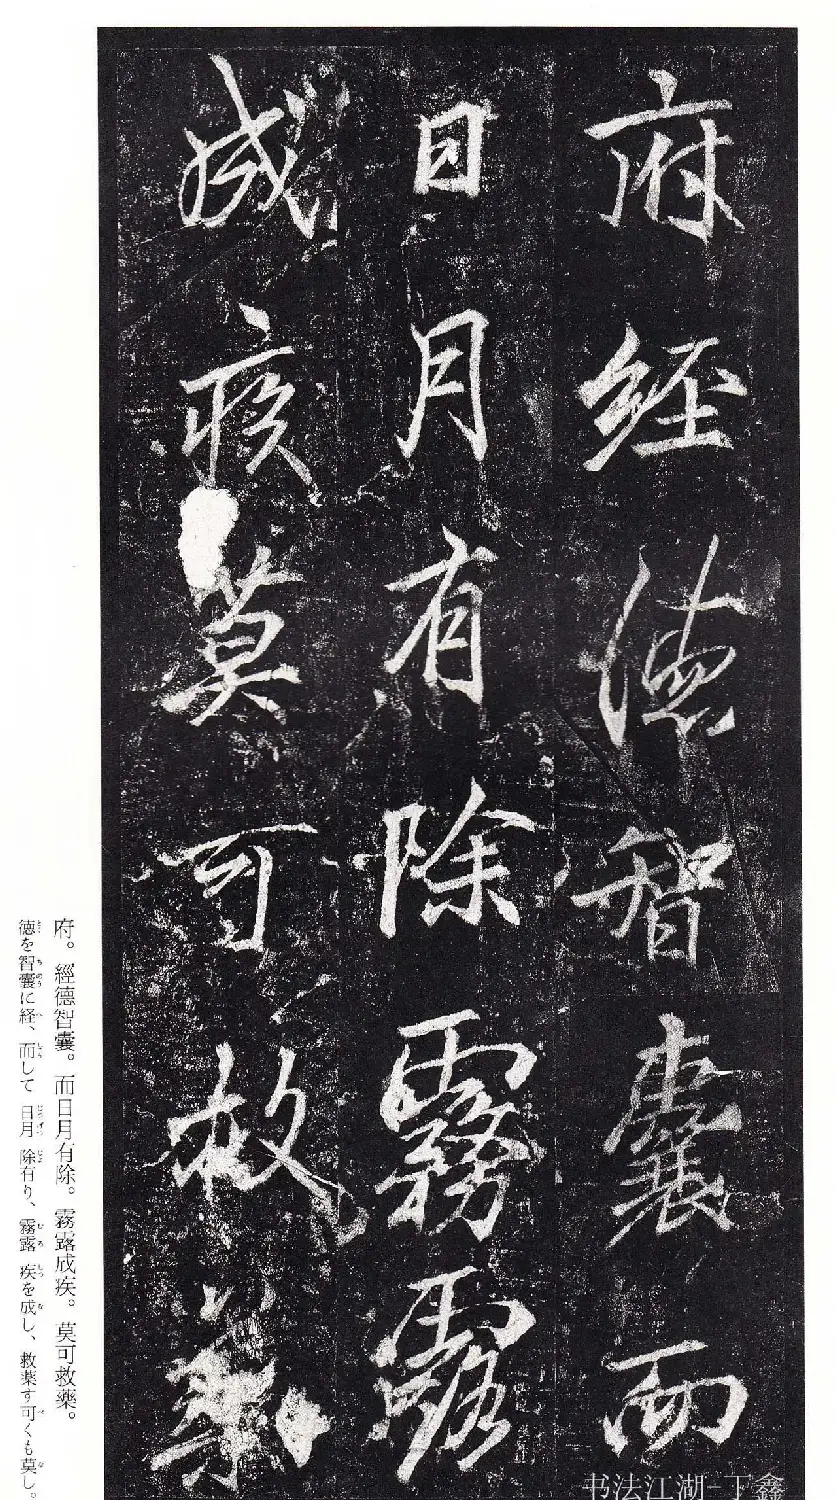 府經德智囊而
日月有除霧露
成疾莫可救藥
府。經德智囊。而日月有除。霧露成疾。莫可救藥。
徳を智囊に経、而して 日月 除有り、霧露 疾を成し、救薬す可くも莫し。
书法江湖-丁鑫